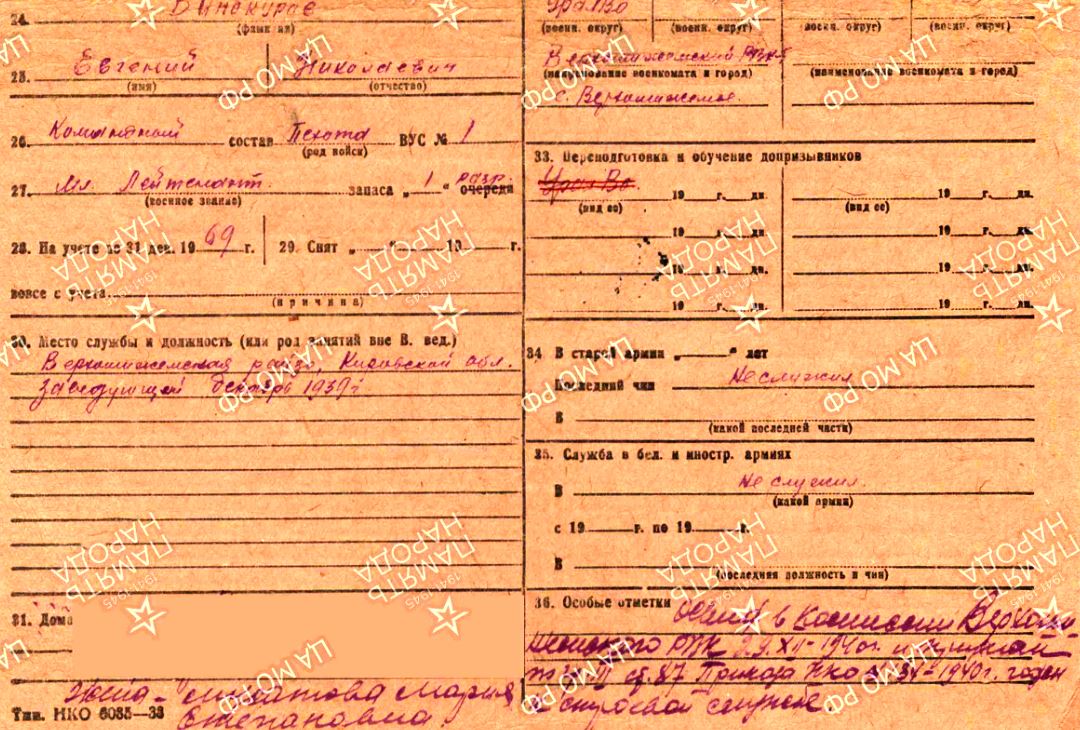 24.
(фамилия)
Евгений Николаевич
25.
(имя) (отчество)
Командный Пехота 1
26. состав ВУС №
(род войск)
27. Мл. Лейтенант. запаса „1“ разр. очереди
(военное звание)
28. На учете до 31 дек. 1969 г. 29. Снят „ “ 19 г.
вовсе с учета
(причина)
30. Место службы и должность (или род занятий вне В. вед.)
Верхошижемская райзо, Кировской обл.
Заведующий декабрь 1939 г
31. Дома
Жена - Мария
Степановна.
Тип. НКО 6035—38
УралВо
(воен. округ) (воен. округ) (воен. округ) (воен. округ)
Верхошижемский РВК
(наименование военкомата и город) (наименование военкомата и город)
с. Верхошижемье.
33. Переподготовка и обучение допризывников
УралВо. 19 г. дн. 19 г. дн.
(вид ее) (вид ее)
19 г. дн. 19 г. дн.
19 г. дн. 19 г. дн.
19 г. дн. 19 г. дн.
34 В старой армии „ “ лет
Последний чин Не служил
В
(какой последней части)
35. Служба в бел. и иностр. армиях
В не служил.
(какой армии)
с 19 г. по 19 г.
В
(последняя должность и чин)
36. Особые отметки в Комиссии Верхоши
жемского РВК XII-1940г.
ст. 87 Приказа НКО 1940г. годен
к строевой службе.
ЦА МО РФ
ПАМЯТЬ НАРОДА
1941-1945